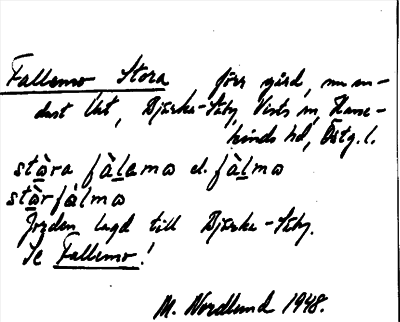 Fallemo Stora förr gård, nu en-
dast tht, Bjärka-Säby, Vists sn, Hane-
kinds hd, Östg. l.
stȧ̀ra fàlamo el. fàlmo
stȧ̀rfàlmo
Jorden lagd till Bjärka-Säby.
Se Fallemo!
M. Nordlund 1948.